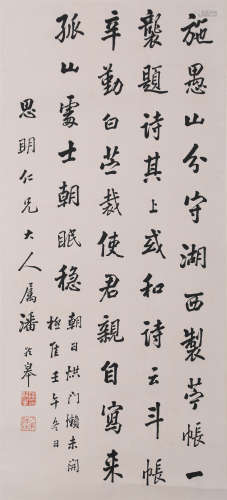 施愚山分守湖西製苧帳一
襲題詩其上或和詩云斗帳
辛勤白苎裁使君親自寫來
孤山處士朝眠穩
朝日烘門懶未開
極隹壬午冬日
思明仁兄大人属潘龄皋